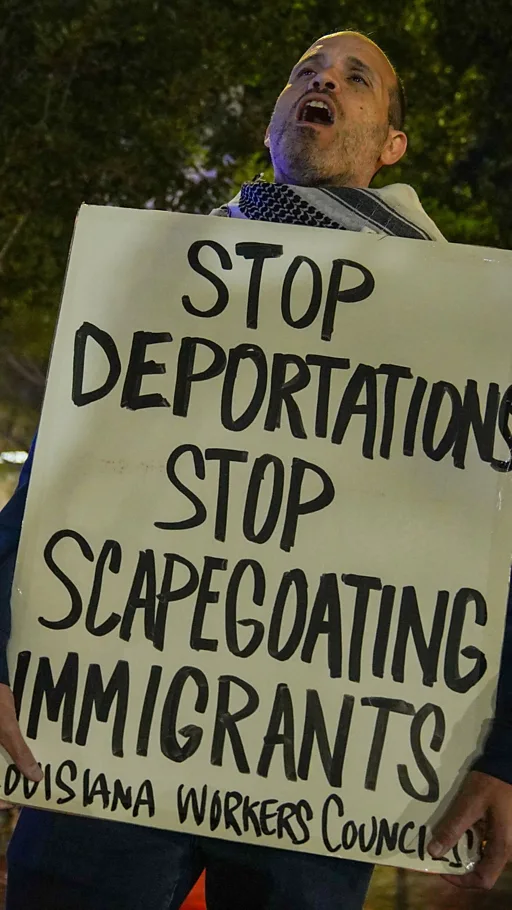 STOP
DEPORTATIONS
STOP
SCAPEGOATING
IMMIGRANTS
LOUISIANA WORKERS COUNCILS